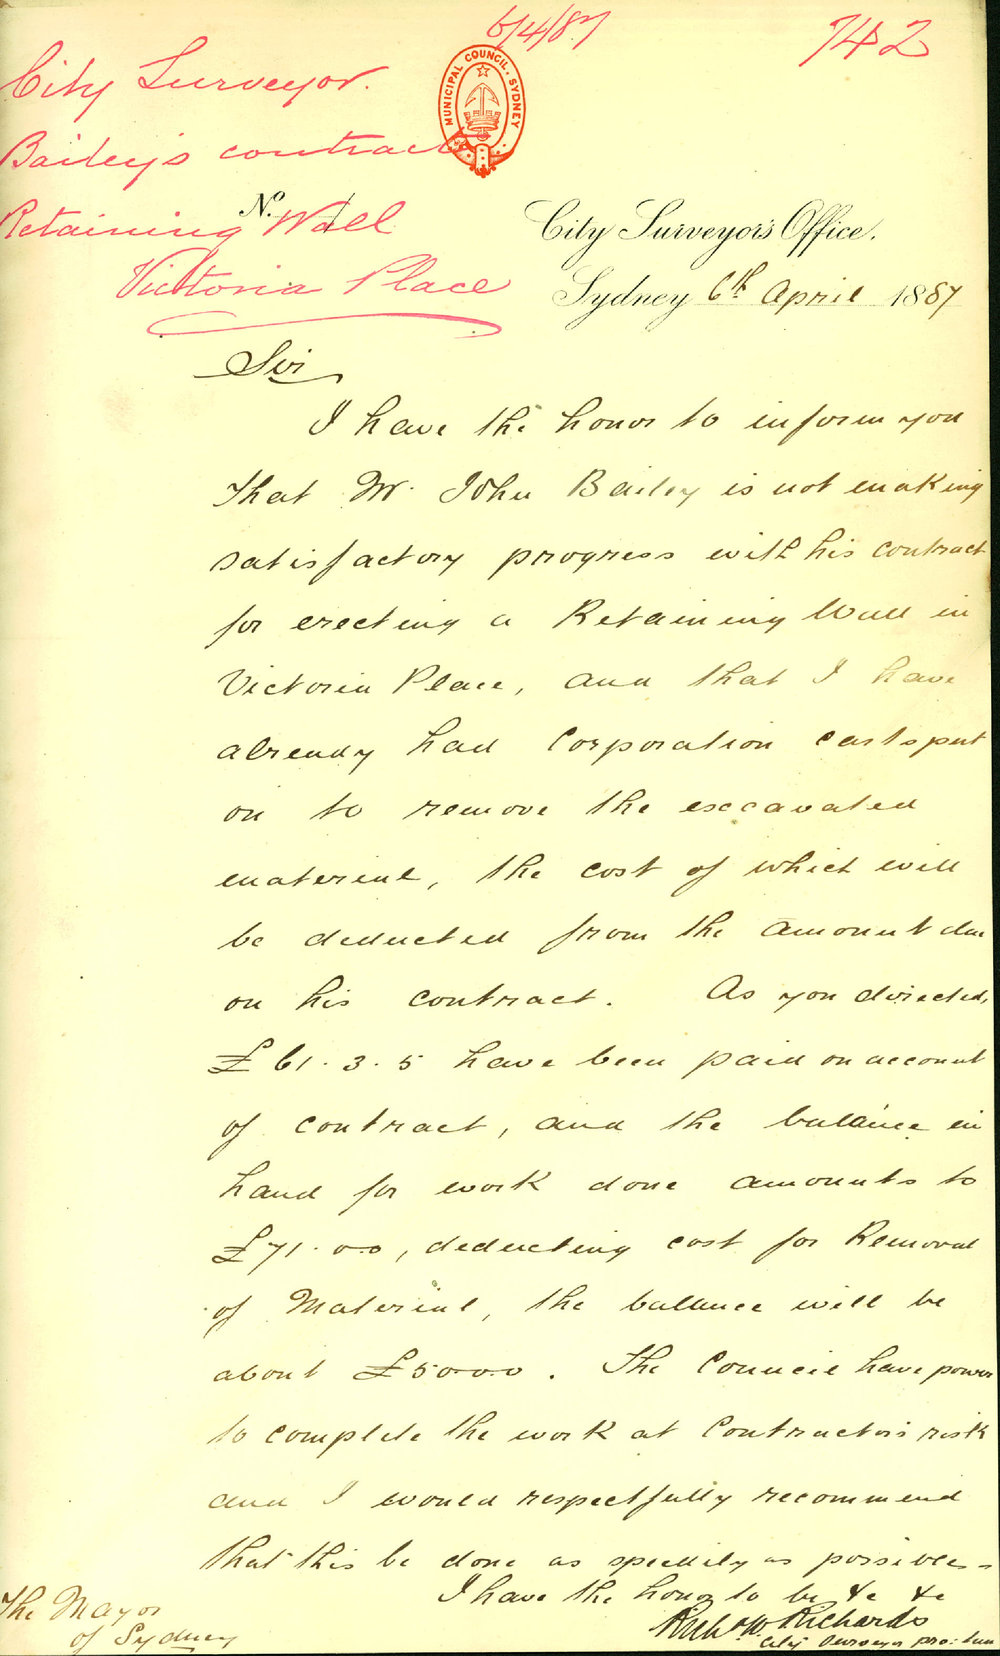 6/4/87
742
MUNICIPAL COUNCIL. SYDNEY
City Surveyor.
Bailey's contract
Retaining Wall
Victoria Place
No.
City Surveyor's Office.
Sydney 6th April 1887
Sir
I have the honor to inform you
that Mr. John Bailey is not making
satisfactory progress with his contract
for erecting a Retaining Wall in
Victoria Place, and that I have
already had Corporation carts put
on to remove the excavated
material, the cost of which will
be deducted from the amount due
on his contract. As you directed,
£61.3.5 have been paid on account
of contract, and the balance in
hand for work done amounts to
£71.0.0, deducting cost for Removal
of Material, the balance will be
about £50.0.0. The Council have power
to complete the work at Contractor's risk
and I would respectfully recommend
that this be done as speedily as possible -
I have the honor to be &c &c
Richd W Richards
City Surveyor pro: tem
The Mayor
of Sydney